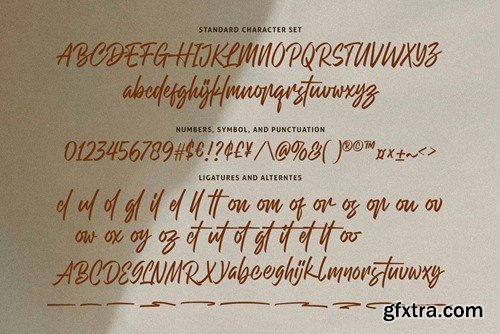 STANDARD CHARACTER SET
ABCDEFGHIJKLMNOPQRSTUVWXYZ
abcdefghijklmnopqrstuvwxyz
NUMBERS, SYMBOL, AND PUNCTUATION
0123456789#$€!?¢£¥/\@%&( )®©™¤×±~<>
LIGATURES AND ALTERNTES
cl ul of gl il el ll tt on om of or os op ou ov
ow ox oy oz ct ut ot gt it et lt oo
ABCDEGLNMRX)abceghijklmnorsuvwxy
gfxtra.com